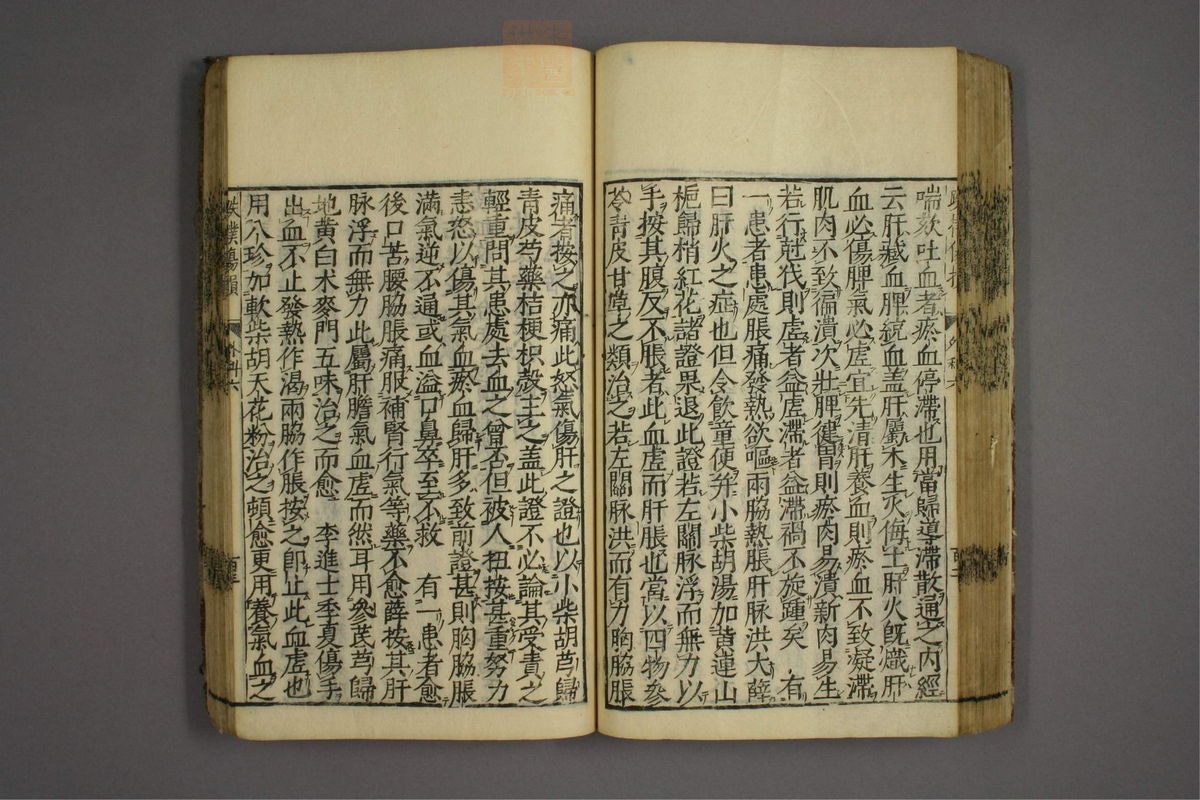 喘欬吐血者瘀血停滯也用當歸導滯散通之内經
云肝藏血脾統血盖肝屬木生火侮土肝火旣熾肝
血必傷脾氣必虚宜先清肝養血則瘀血不致凝滯
肌肉不致徧潰次壯脾健胃則瘀肉易潰新肉易生
若行尅伐則虚者益虚滯者益滯禍不旋踵矣　有
一患者患處脹痛發熱欲嘔兩脇熱脹肝脉洪大薛
曰肝火之症也但令飲童便幷小柴胡湯加黄連山
梔歸梢紅花諸證果退此證若左關脉浮而無力以
手按其腹反不脹者此血虚而肝脹也當以四物參
苓青皮甘草之類治之若左關脉洪而有力胸脇脹
痛者按之亦痛此怒氣傷肝之證也以小柴胡芎歸
青皮芍藥桔梗枳殻主之盖此證不必論其受責之
輕重問其患處去血之曾否但被人扭按甚重努力
恚怒以傷其氣血瘀血歸肝多致前證甚則胸脇脹
滿氣逆不通或血溢口鼻卒至不救　有一患者愈
後口苦腰脇脹痛服補腎行氣等藥不愈薛按其肝
脉浮而無力此屬肝膽氣血虚而然耳用參茋芎歸
地黄白术麥門五味治之而愈　李進士季夏傷手
出血不止發熱作渴兩脇作脹按之卽止此血虚也
用八珍加軟柴胡天花粉治之頓愈更用養氣血之
跌撲傷損